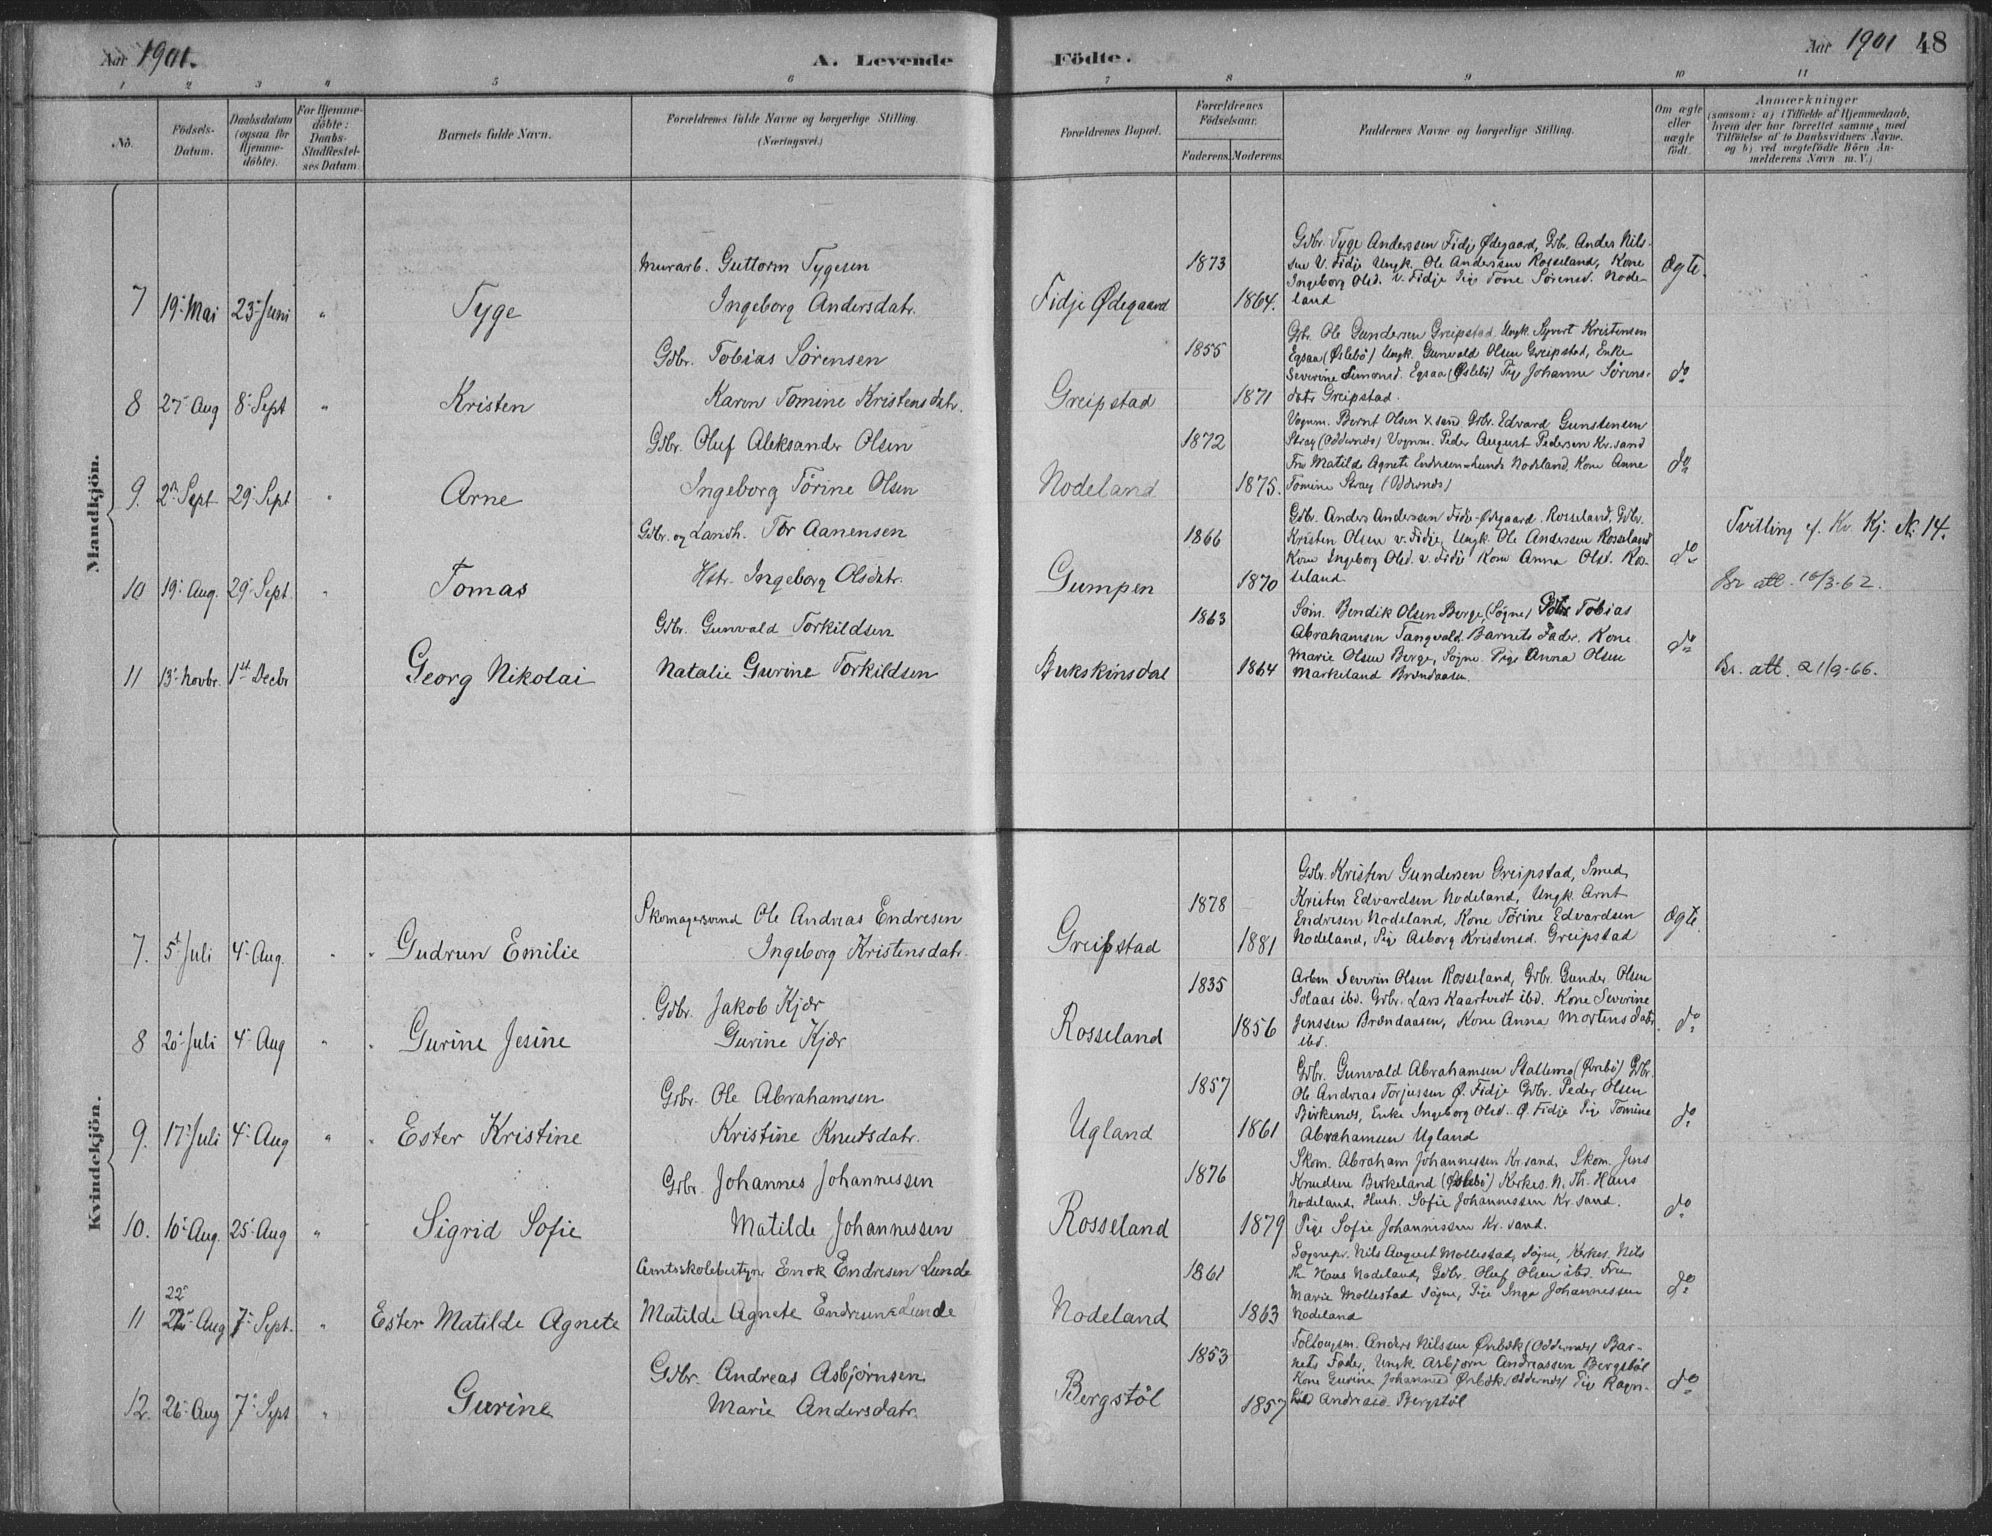 Aar 1901.
A. Levende
Födte.
Aar 1901
48
1 2 3 4 5 6 7 8 9 10 11
No.
Födsels-Datum.
Daabsdatum (ogsaa for Hjemmedöbte).
For Hjemmedöbte: Daabs-Stadfæstelses Datum.
Barnets fulde Navn.
Forældrenes fulde Navne og borgerlige Stilling. (Næringsvei.)
Forældrenes Bopæl.
Forældrenes Födselsaar.
Faderens. Moderens.
Faddernes Navne og borgerlige Stilling.
Om ægte eller uægte födt.
Anmærkninger
(saasom: a) i Tilfælde af Hjemmedaab, hvem der har forrettet samme, med Tilföielse af to Daabsvidners Navne, og b) ved uægtefödte Börn Anmelderens Navn m. V.)
Mandkjön.
7 19' Mai 23' Juni " Tyge
Murarb. Guttorm Tygesen
Ingeborg Andersdatr.
Fidje Ødegaard 1873 1864.
Gdbr. Tyge Anderssen Fidje Ødegaard, Gdbr. Anders Nils-
sen V. Fidje Ungk. Ole Andersen Rosseland, Kone
Ingeborg Olsd. V. Fidje Pige Tone Sørensd. Node-
land
Ægte.
8 27' Aug 8' Sept " Kristen
Gdbr. Tobias Sørensen
Karen Tomine Kristensdatr.
Greipstad 1855 1871
Gbr. Ole Gundersen Greipstad, Ungk. Syvert Kristensen
Egsaa (Øslebö) Ungk. Gunvald Olsen Greipstad, Enke
Severine Simonsd. Egsaa (Øslebö) Pige Johanne Sörens-
datr Greipstad.
do
9. 2n Sept 29' Sept " Arne
Gdbr. Oluf Aleksander Olsen
Ingeborg Törine Olsen
Nodeland 1872 1875.
Vognm. Bernt Olsen X sand Gdbr. Edvard Gunstensen
Stray (Oddernes) Vognm. Peder August Pedersen Kr. sand
Fru Matilde Agnete Endresen-Lunde Nodeland, Kone Anne
Tomine Stray (Oddernes)
do
10 19' Aug. 29' Sept. " Tomas
Gdbr. og Landh. Tor Aanensen
Hstr. Ingeborg Olsdatr.
Gumpen 1866 1870
Gdbr. Anders Anderssen Fidje-Ødegaard. Rosseland, Gdbr.
Kristen Olsen v. Fidje, Ungk. Ole Andersen Rosseland
Kone Ingeborg Olsd. v. Fidje Kone Anna Olsd. Ros-
seland
do
Tvilling t. Kv. Kj. N. 14.
Br att. 10/3-62.
11 13' Novbr. 1st Decbr Georg Nikolai
Gdbr. Gunvald Torkildsen
Natalie Gurine Torkildsen
Bukskinsdal 1863 1864
Søm. Bendik Olsen Berge, (Søgne) Tobias
Abrahamsen Tangvald. Barnets Fader. Kone
Marie Olsen Berge, Søgne. Pige Anna Olsen
Markeland Brændaasen.
do
Br. att. 21/9-66.
Kvindekjön.
7. 5t Juli 4' Aug. " Gudrun Emilie
Skomagersvend Ole Andreas Endresen
Ingeborg Kristensdatr.
Greipstad 1878 1881
Gdbr. Kristen Gundersen Greipstad, Smed
Kristen Edvardsen Nodeland, Ungk. Arnt
Endresen Nodeland, Kone Törine Edvardsen
Nodeland, Pige Asborg Kristensd. Greipstad
Ægte.
8 20' Juli 4' Aug " Gurine Jesine
Gdbr. Jakob Kjær
Gurine Kjær
Rosseland 1835 1856
Arbm Severin Olsen Rosseland, Gdbr. Gunder Olsen
Solaas ibd. Gdbr. Lars Kaartvedt ibd. Kone Severine
Jenssen Brændaasen, Kone Anna Mortensdatr.
ibd.
do
9. 17' Juli 4' Aug " Ester Kristine
Gdbr. Ole Abrahamsen
Kristine Knutsdatr.
Ugland 1857 1861
Gdbr. Gunvald Abrahamsen Stallemo (Øvrebö) Gdbr.
Ole Andreas Torjussen Ø. Fidje Gdbr. Peder Olsen
Birkenes, Enke Ingeborg Olsd. Ø. Fidje Pige Tomine
Abrahamsen Ugland
do
10. 10' Aug. 25' Aug " Sigrid Sofie
Gdbr. Johannes Johannessen
Matilde Johannessen
Rosseland 1876 1879
Skom. Abraham Johannessen Kr.sand, Skom. Jens
Knudsen Birkeland (Øslebö) Kirkes. N. Th. Haus
Nodeland, Hush. Sofie Johannessen Kr. sand.
Pige Sofie Johannessen Kr. sand.
do
11 22' Aug 7' Sept. " Ester Matilde Agnete
Amtsskolebestyr. Enok Endresen Lunde
Matilde Agnete Endresen-Lunde
Nodeland 1861 1863
Sognepr. Nils August Mollestad, Søgne, Kirkes. Nils
Th. Haus Nodeland, Gdbr. Oluf Olsen ibd. Fru
Marie Mollestad Søgne, Pige Inga Johannessen
Nodeland
do
12. 26' Aug 7' Sept " Gurine
Gdbr. Andreas Asbjørnsen
Marie Andersdatr.
Bergstøl 1853 1857
Anders Nilssen Ørebæk (Oddernes) Bar-
nets Fader, Ungk. Asbjørn Andreassen Bergstöl
Kone Gurine Johannesd Ørebæk (Oddernes) Pige Ragn-
hild Andreasd. Bergstöl
do